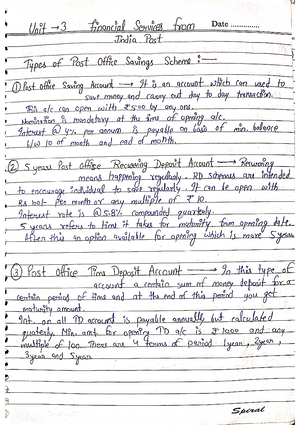 Unit → 3 Financial Services from Date ............
India Post
Types of Post Office Savings Scheme :-
① Post office Saving Account → It is an account which can used to
save money and carry out day to day transaction.
This a/c can open with ₹500 by any one.
Nomination is mandatory at the time of opening a/c.
Interest @ 4% per annum is payable on basis of min. balance
b/w 10 of month and end of month.
② 5 years Post Office Recurring Deposit Account → Recurring
means happening regularly. RD schemes are intended
to encourage individual to save regularly. It can be open with
Rs 100/- Per month or any multiple of ₹ 10.
Interest rate is @ 5.8% compounded quarterly.
5 years refers to time it takes for maturity from opening date.
After this an option available for opening which is more 5 years
③ Post Office Time Deposit Account → In this type of
account a certain sum of money deposit for a
certain period of time and at the end of this period you get
maturity amount.
Int. on all PD account is payable annually but calculated
quaterly. Min. amt for opening TD a/c is ₹ 1000 and any
multiple of 100. There are 4 terms of period 1year, 2year,
3year and 5year
Spiral